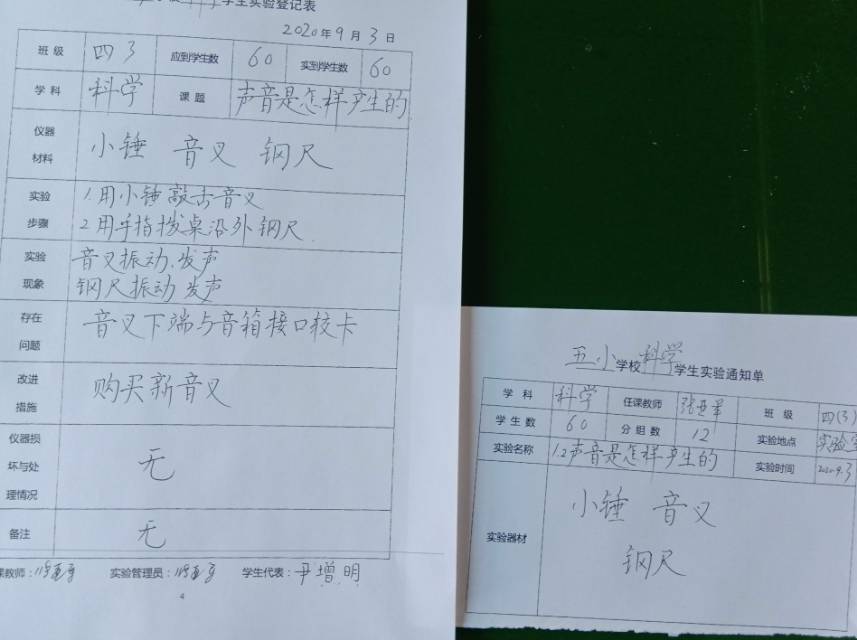 科学学生实验登记表
2020年9月3日
班级 四3 应到学生数 60 实到学生数 60
学科 科学 课题 声音是怎样产生的
仪器材料 小锤 音叉 钢尺
实验步骤 1.用小锤敲击音叉
2用手指拨桌沿外钢尺
实验现象 音叉振动,发声
钢尺振动 发声
存在问题 音叉下端与音箱接口较卡
改进措施 购买新音叉
仪器损坏与处理情况 无
备注 无
课教师: 实验管理员: 学生代表:尹增明
4
五小学校科学学生实验通知单
学科 科学 任课教师 班级 四(3)
学生数 60 分组数 12 实验地点 实验室
实验名称 1.2声音是怎样产生的 实验时间 2020.9.3
实验器材 小锤 音叉
钢尺